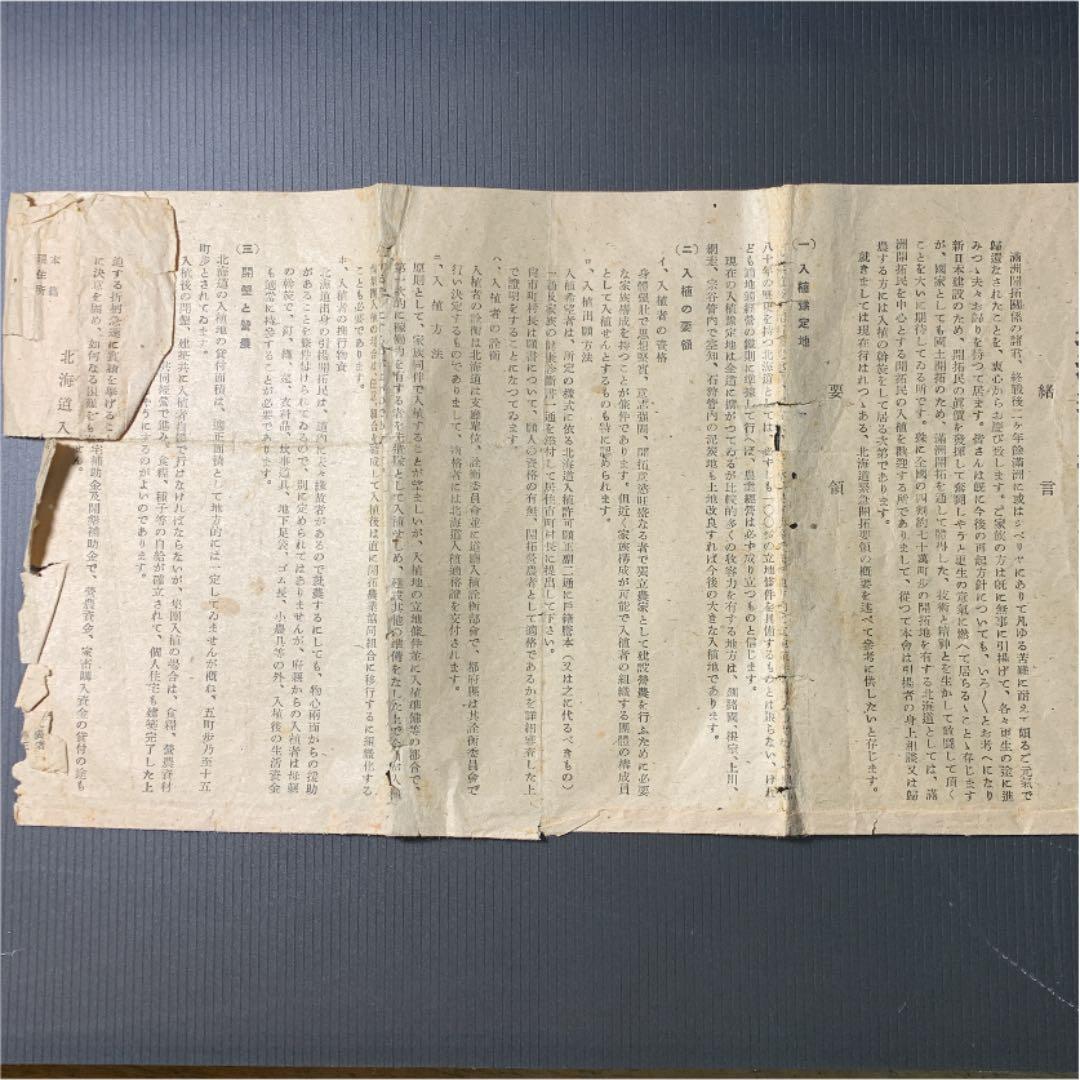 緒言
滿洲開拓關係の諸君、終戰後二ケ年餘滿洲に或はシベリヤにありて凡ゆる苦難に耐えて頗るご元氣で
歸還なされたことを、衷心からお慶び致します。ご家族の方は既に無事に引揚げて、各々更生の途に進
みつゝ夫々お歸りを待つて居ます。皆さんは既に今後の再起方針についても、いろ〱とお考へになり
新日本建設のため、開拓民の眞價を發揮して奮鬪しやうと更生の意氣に燃へて居らるゝことゝ存じます
が、國家としても國土開拓のため、滿洲開拓を通して體得した、技術と精神とを生かして敢鬪して頂く
ことを大いに期待してゐる所です。殊に全國の四割約七十萬町歩の開拓地を有する北海道としては、滿
洲開拓民を中心とする開拓民の入植を歡迎する所でありまして、從つて本會は引揚者の身上相談又は歸
農する方には入植の斡旋をして居る次第であります。
就きましては現在行はれつゝある、北海道緊急開拓要領の概要を述べて參考に供したいと存じます。
要領
(一) 入植豫定地
八十年の歴史を持つ北海道としては、必ずしも一〇〇%の立地條件を具備するものとは限らない、けれ
ども適地適經營の鐵則に準據して行へば、農業經營は必ず成り立つものと信じます。
現在の入植豫定地は全道に擴がつてゐるが比較的多くの收容力を有する地方は、釧路國、根室、上川、
網走、宗谷管内で空知、石狩管内の泥炭地も土地改良すれば今後の大きな入植地であります。
(二) 入植の要領
イ、入植者の資格
身體强壯で思想堅實、意志强固、開拓意慾旺盛なる者で獨立農家として建設營農を行ふために必要
な家族構成を持つことが條件であります。但近く家族構成が可能で入植者の組織する團體の構成員
として入植せんとするものも特に認められます。
ロ、入植出願方法
入植希望者は、所定の樣式に依る北海道入植許可願正副二通に戸籍謄本(又は之に代るべきもの)
一通及家族の健康診斷書一通を添付して居住市町村長に提出して下さい。
尚市町村長は願書について、願人の資格の有無、開拓營農者として適格であるかを詳細審査した上
で證明をすることになつてゐます。
ハ、入植者の詮衡
入植者の詮衡は北海道は支廳單位、詮衡委員會並に道廳入植詮衡部會で、都府縣は其詮衡委員會で
行い決定するものでありまして、合格者には北海道入植適格證を交付されます。
ニ、入植方法
原則として、家族同伴で入植することが望ましいが、入植地の立地條件並に入植準備等の都合で、
第一次的に稼働力を有する者を先遣隊として入植せしめ、建設其他の準備をなした上で
入植後は直に開拓農業協同組合に移行するに組織化する
ことも必要であります。
ホ、入植者の携行物資
北海道出身の引揚開拓民は、道内に夫々縁故者があるので就農するにしても、物心兩面からの援助
があることを條件付けられてゐるので、別に定められてはありませんが、府縣からの入植者は母縣
の斡旋で、釘、鎹、莚、衣料品、炊事道具、地下足袋、ゴム長、小農具等の外、入植後の生活資金
も適當に持參することが必要であります。
(三) 開墾と營農
北海道の入植地の貸付面積は、適正面積として地方的には一定してゐませんが概ね、五町歩乃至十五
町歩とされてゐます。
入植後の開墾、建築共に入植者自體で行はなければならないが、集團入植の場合は、食糧、營農資材
共同經營で進み、食糧、種子等の自給が確立されて、個人住宅も建築完了した上
うにするのがよいのであります。
宅補助金及開墾補助金で、營農資金、家畜購入資金の貸付の途も
迫する折柄急速に實績を擧げるこ
に決意を固め、如何なる艱難をも
北海道入
本籍
現在所